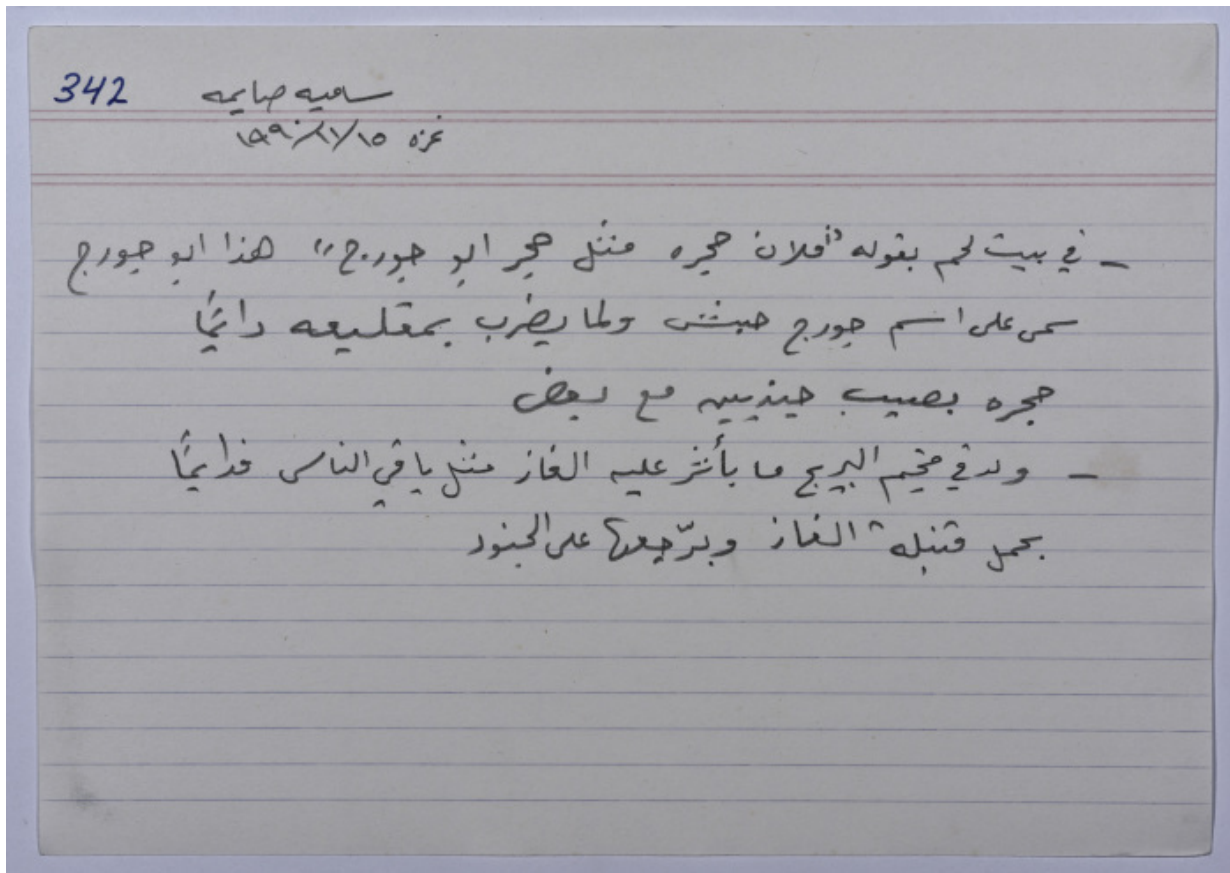 342 ساميه صايمه
غزه ١٩٩٠/١١/١٥
- في بيت لحم بقولو "فلان حجره مثل حجر ابو جورج" هذا ابو جورج
سمي على اسم جورج حبش ولما يضرب بمقليعه دائمًا
حجره بصيب جنديين مع بعض
- ولد في مخيم البريج ما بأثر عليه الغاز مثل باقي الناس فدايمًا
بحمل قنبلة الغاز وبرّجعها على الجنود